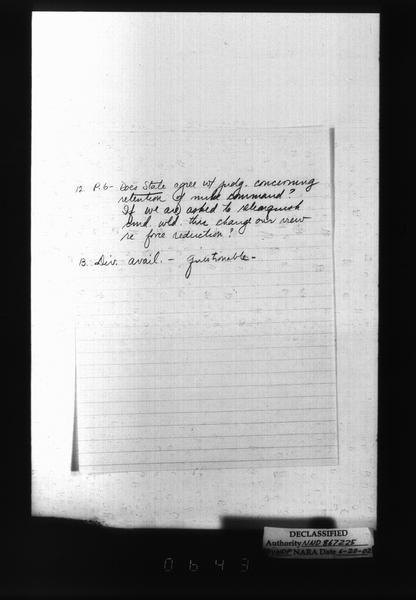 12. P. 6- Does State agree w/ judg. concerning
retention of milit command?
If we are asked to relinquish
cmd. wld. this change our view
re force reduction?
B. Div. avail. - questionable-
DECLASSIFIED
Authority NND 867225
By NARA Date 6-20-02
0643